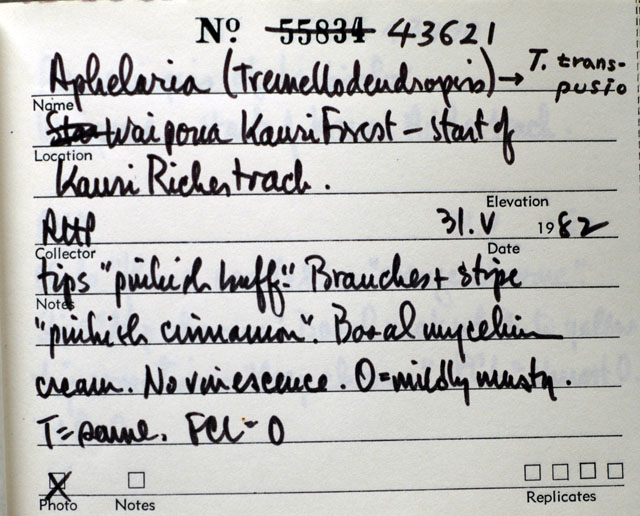 Nº 55834 43621
Aphelaria (Tremellodendropsis) → T. trans-
pusio
Name
Waipoua Kauri Forest - start of
Location
Kauri Riches track.
Elevation
RHP 31.V 1982
Collector Date
tips "pinkish buff." Branches + stipe
Notes
"pinkish cinnamon". Basal mycelium
cream. No virescence. O=mildly musty.
T=same. FCL-O
Photo Notes Replicates